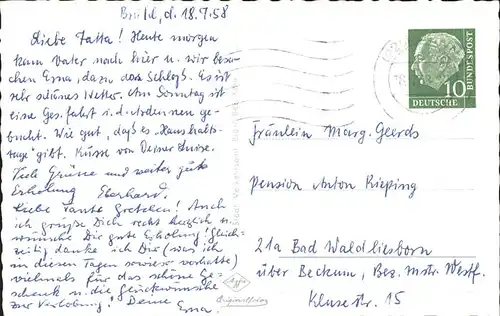 Brühl, d. 18.7.58
Liebe Tatta! Heute morgen
kam Vater noch hier u. wir besu-
chen Erna, dazu das Schloß. Es ist
sehr schönes Wetter. Am Sonntag ist
eine Ges. fahrt i. d. Ardennen ge-
bucht. Wie gut, daß es "Haushalts-
tage" gibt. Küsse von Deiner Luise.
Viele Grüsse und weiter gute
Erholung Eberhard.
Liebe Tante Gretchen! Auch
ich grüße Dich recht herzlich u.
wünsche Dir gute Erholung! Gleich-
zeitig danke ich Dir (was ich
in diesen Tagen sowieso vorhatte)
vielmals für das schöne Ge-
schenk u. die Glückwünsche
zur Verlobung! Deine Erna.
Agfa
Originalfoto
10
DEUTSCHE
BUNDESPOST
Fräulein Marg. Geerds
Pension Anton Rieping
21a Bad Waldliesborn
über Beckum, Bez. Mstr. Westf.
Klusestr. 15